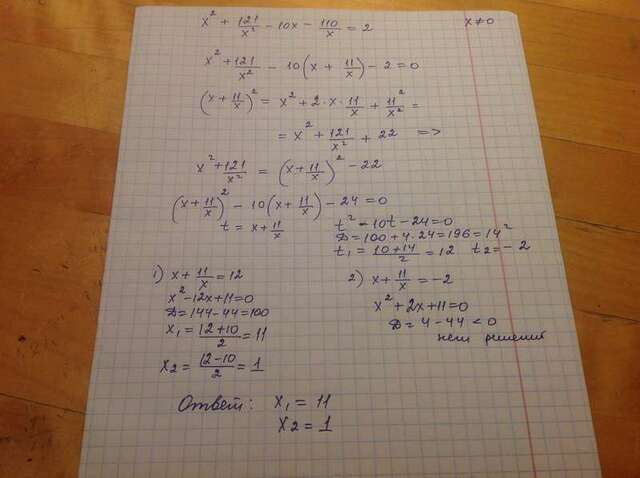 x² + 121/x² - 10x - 110/x = 2    x≠0
x² + 121/x² - 10(x + 11/x) - 2 = 0
(x + 11/x)² = x² + 2·x·11/x + 11²/x² =
= x² + 121/x² + 22 =>
x² + 121/x² = (x + 11/x)² - 22
(x + 11/x)² - 10(x + 11/x) - 24 = 0
t = x + 11/x
t² - 10t - 24 = 0
D = 100 + 4·24 = 196 = 14²
t₁ = (10+14)/2 = 12    t₂ = -2
1) x + 11/x = 12
x² - 12x + 11 = 0
D = 144 - 44 = 100
x₁ = (12+10)/2 = 11
x₂ = (12-10)/2 = 1
2) x + 11/x = -2
x² + 2x + 11 = 0
D = 4 - 44 < 0
нет решений
Ответ: x₁ = 11
x₂ = 1